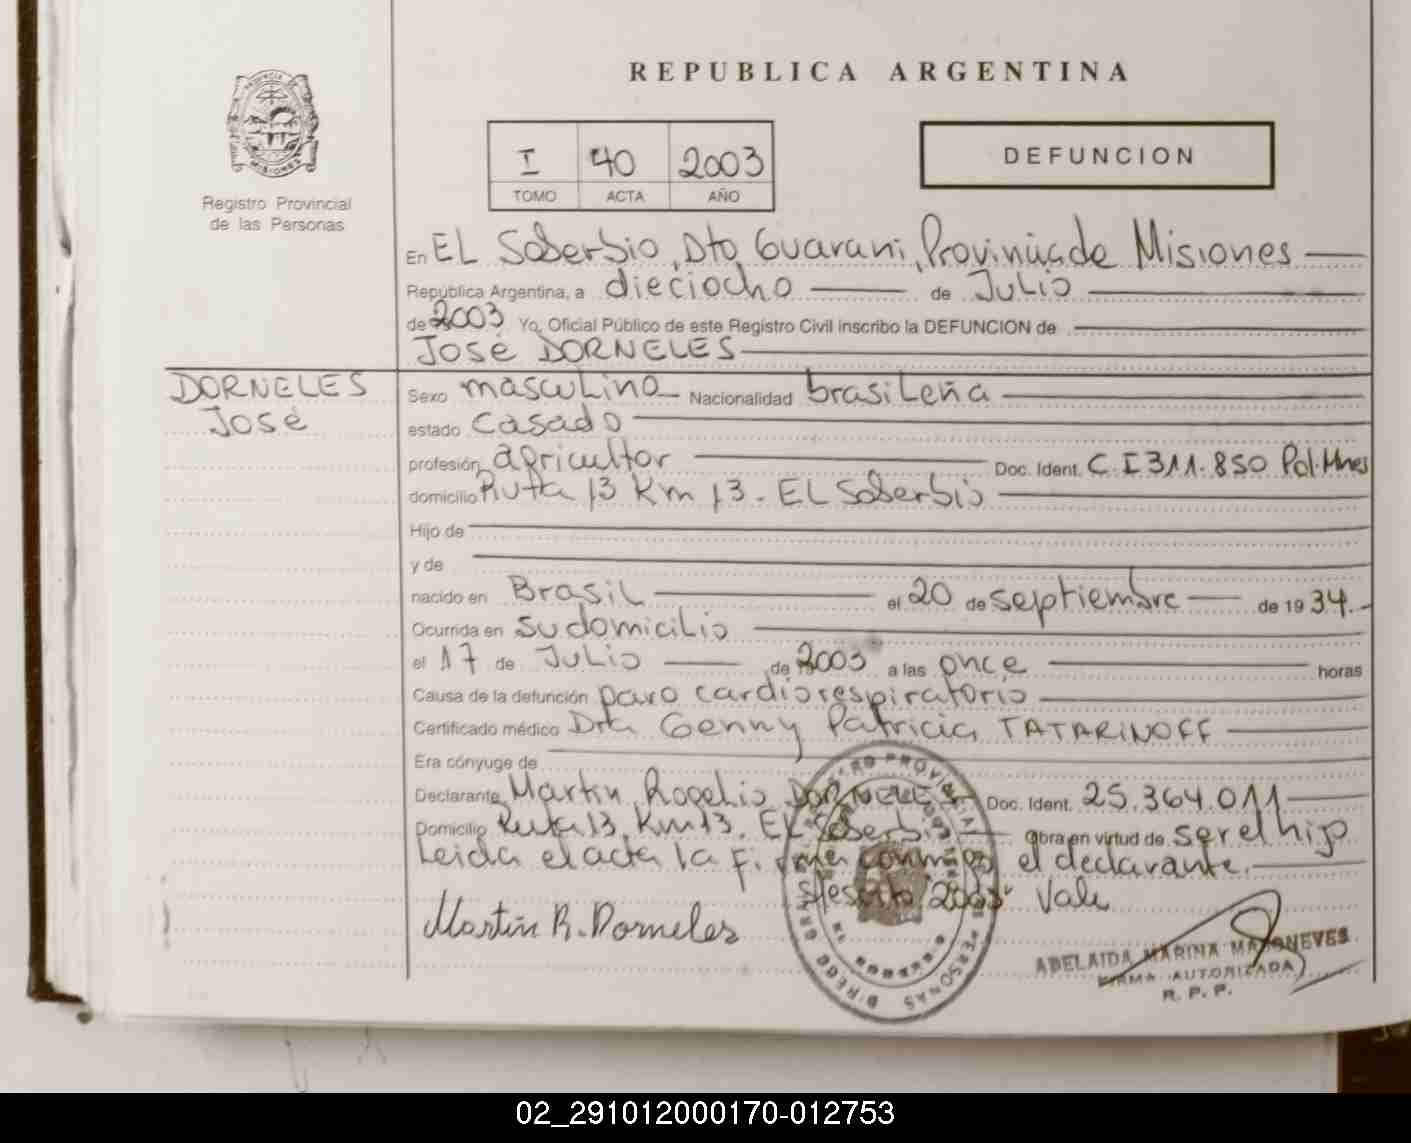 REPUBLICA ARGENTINA
Registro Provincial
de las Personas
I 40 2003
TOMO ACTA AÑO
DEFUNCION
En EL Soberbio, Dto Guarani, Provincia de Misiones
República Argentina, a dieciocho de Julio
de 2003 Yo, Oficial Público de este Registro Civil inscribo la DEFUNCION de
José DORNELES
DORNELES
José
Sexo masculino Nacionalidad brasileña
estado Casado
profesión agricultor Doc. Ident. C.I 311.850 Pol. Mnes
domicilio Ruta 13 Km 13. EL Soberbio
Hijo de
y de
nacido en Brasil el 20 de septiembre de 19 34.
Ocurrida en su domicilio
el 17 de Julio de 2003 a las once horas
Causa de la defunción paro cardiorespiratorio
Certificado médico Dra Genny Patricia TATARINOFF
Era cónyuge de
Declarante Martin Rogelio DORNELES Doc. Ident. 25.364.011
Domicilio Ruta 13, Km 13. EL Soberbio Obra en virtud de ser el hijo
Leida el acta la firma conmigo el declarante.
"2003" Vale
Martin R. Dorneles
ADELAIDA MARINA
FIRMA AUTORIZADA
R. P. P.
02_291012000170-012753